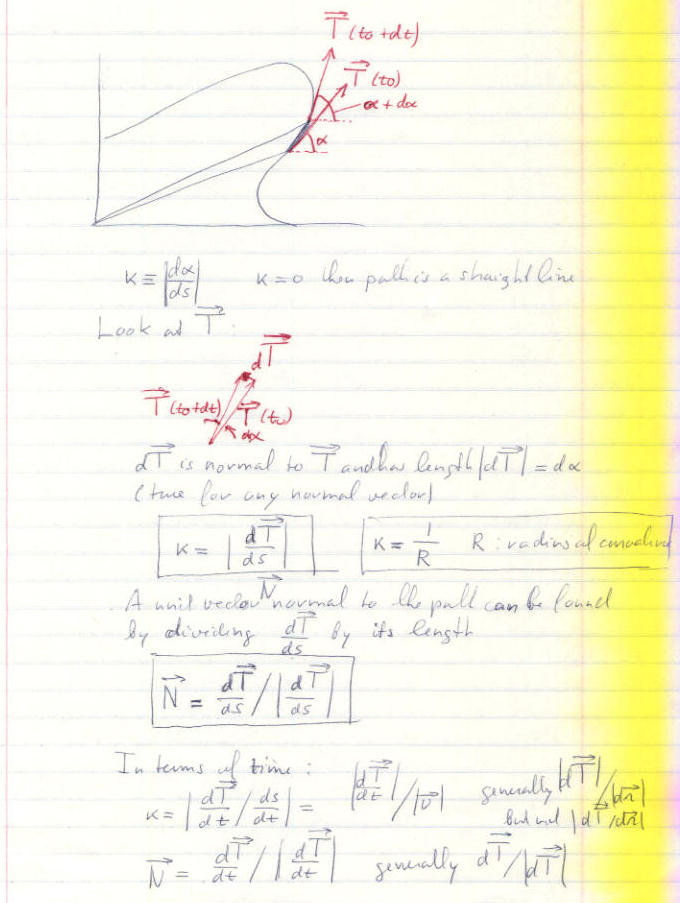 T⃗ (to+dt)
T⃗ (to)
α + dα
α
κ ≡ |dα/ds|   κ = 0 then path is a straight line
Look at T⃗ :
dT⃗
T⃗ (to+dt) T⃗ (to)
dα
dT⃗ is normal to T⃗ and has length |dT⃗| = dα
(true for any normal vector)
κ = |dT⃗/ds|   κ = 1/R   R : radius of curvature
A unit vector N⃗ normal to the path can be found
by dividing dT⃗/ds by its length
N⃗ = dT⃗/ds / |dT⃗/ds|
In terms of time :
κ = |dT⃗/dt / ds/dt| = |dT⃗/dt| / |v⃗|   generally |dT⃗| / |dr⃗|
but not |dT⃗/dr⃗|
N⃗ = dT⃗/dt / |dT⃗/dt|   generally dT⃗/|dT⃗|